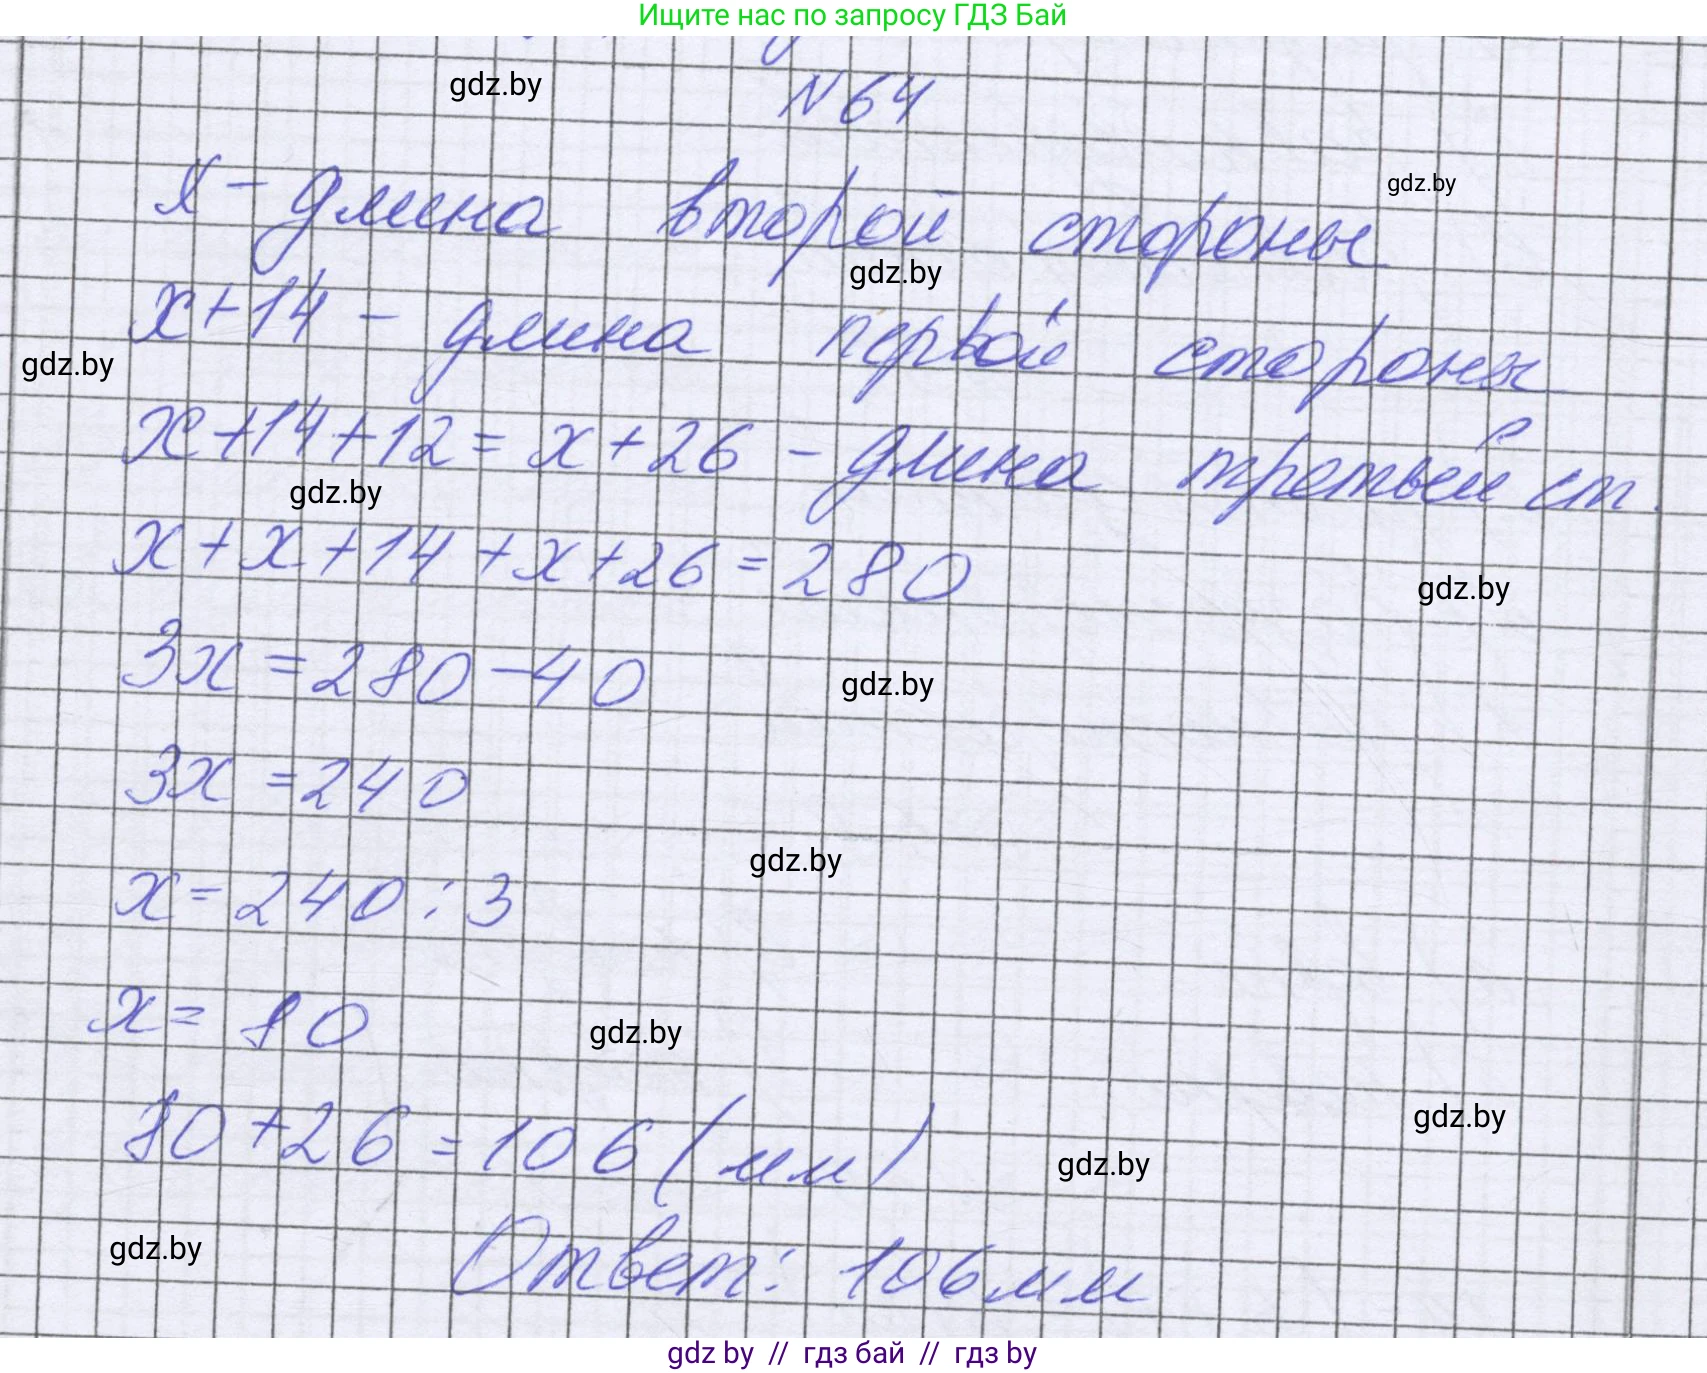 Ищите нас по запросу ГДЗ Бай
gdz.by
N 64
x - длина второй стороны
gdz.by
gdz.by
x+14 - длина первой стороны
gdz.by
x+14+12 = x+26 - длина третьей ст.
gdz.by
x+x+14+x+26=280
gdz.by
3x=280-40
gdz.by
3x=240
gdz.by
x=240:3
x=80
gdz.by
80+26=106 (мм)
gdz.by
gdz.by
gdz.by
Ответ: 106 мм
gdz by // гдз бай // гдз by